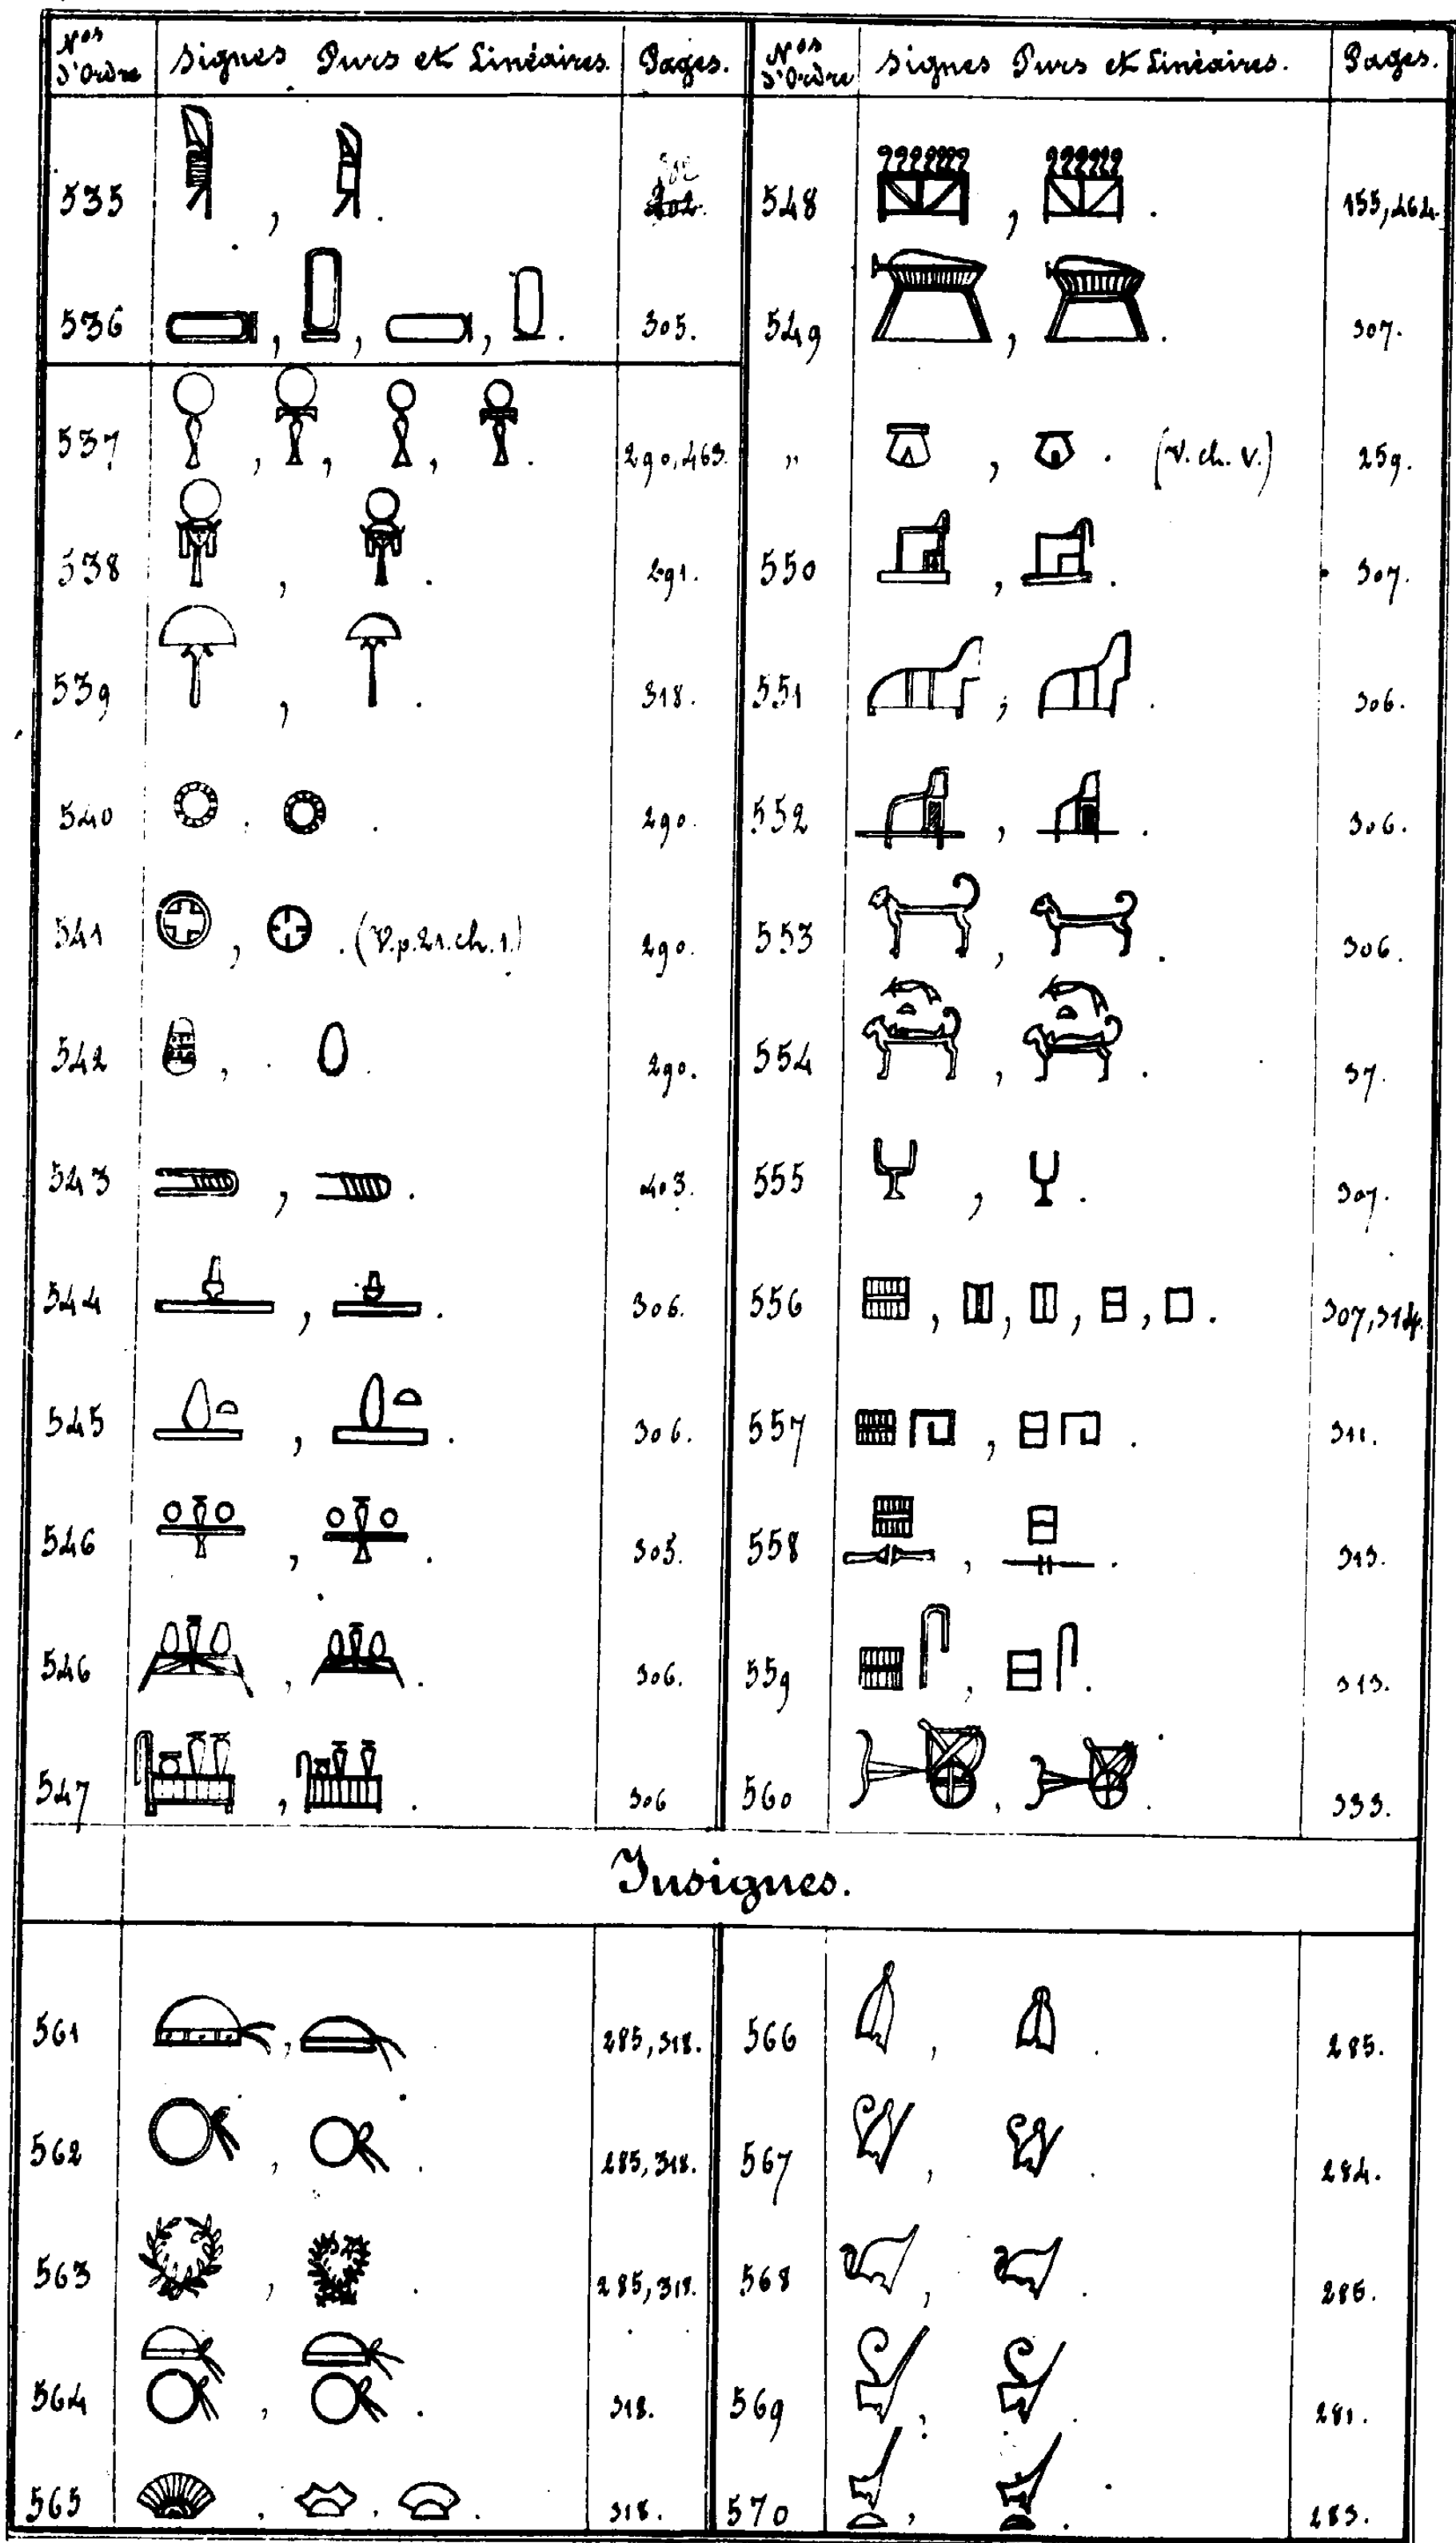 Nos d'Ordre Signes Purs et Linéaires. Pages.
535 , .
536 , , , . 305.
537 , , , . 290, 463.
538 , . 291.
539 , . 318.
540 . . 290.
541 , . (V. p. 21. ch. 1.) 290.
542 , . 290.
543 , . 403.
544 , . 306.
545 , . 306.
546 , . 305.
546 , . 306.
547 , . 306
Nos d'Ordre Signes Purs et Linéaires. Pages.
548 , . 155, 464.
549 , . 307.
„ , . (V. ch. V.) 259.
550 , . 307.
551 , . 306.
552 , . 306.
553 , . 306.
554 , . 37.
555 , . 307.
556 , , , , . 307, 314.
557 , . 311.
558 , . 313.
559 , . 313.
560 , . 333.
Insignes.
561 , . 285, 318.
562 , . 285, 318.
563 , . 285, 318.
564 , . 318.
565 , , . 318.
566 , . 285.
567 , . 284.
568 , .
569 , . 281.
570 , . 283.